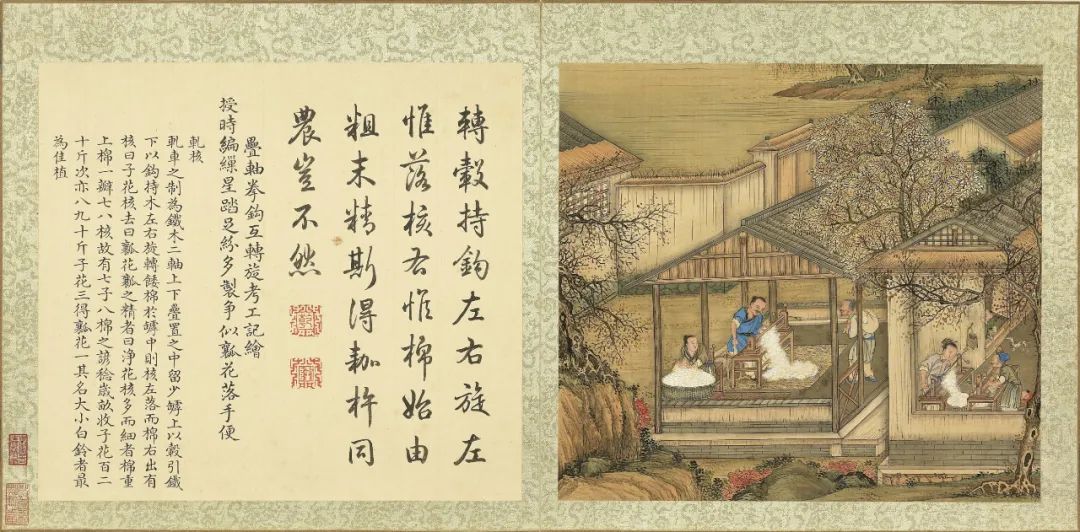 轉轂持鈎左右旋左
惟落核右惟棉始由
粗末精斯得耞杵同
農豈不然
疊軸拳鈎互轉旋考工記繪
授時編繅星踏足紛多製爭似瓢花落手便
軋核
軋車之制為鐵木二軸上下疊置之中留少罅上以轂引鐵
下以鈎持木左右旋轉餧棉於罅中則核左落而棉右出有
核曰子花核去曰瓢花瓢之精者曰净花核多而細者棉重
上棉一瓣七八核故有七子八棉之諺稔歲畝收子花百二
十斤次亦八九十斤子花三得瓢花一其名大小白鈴者最
為佳植